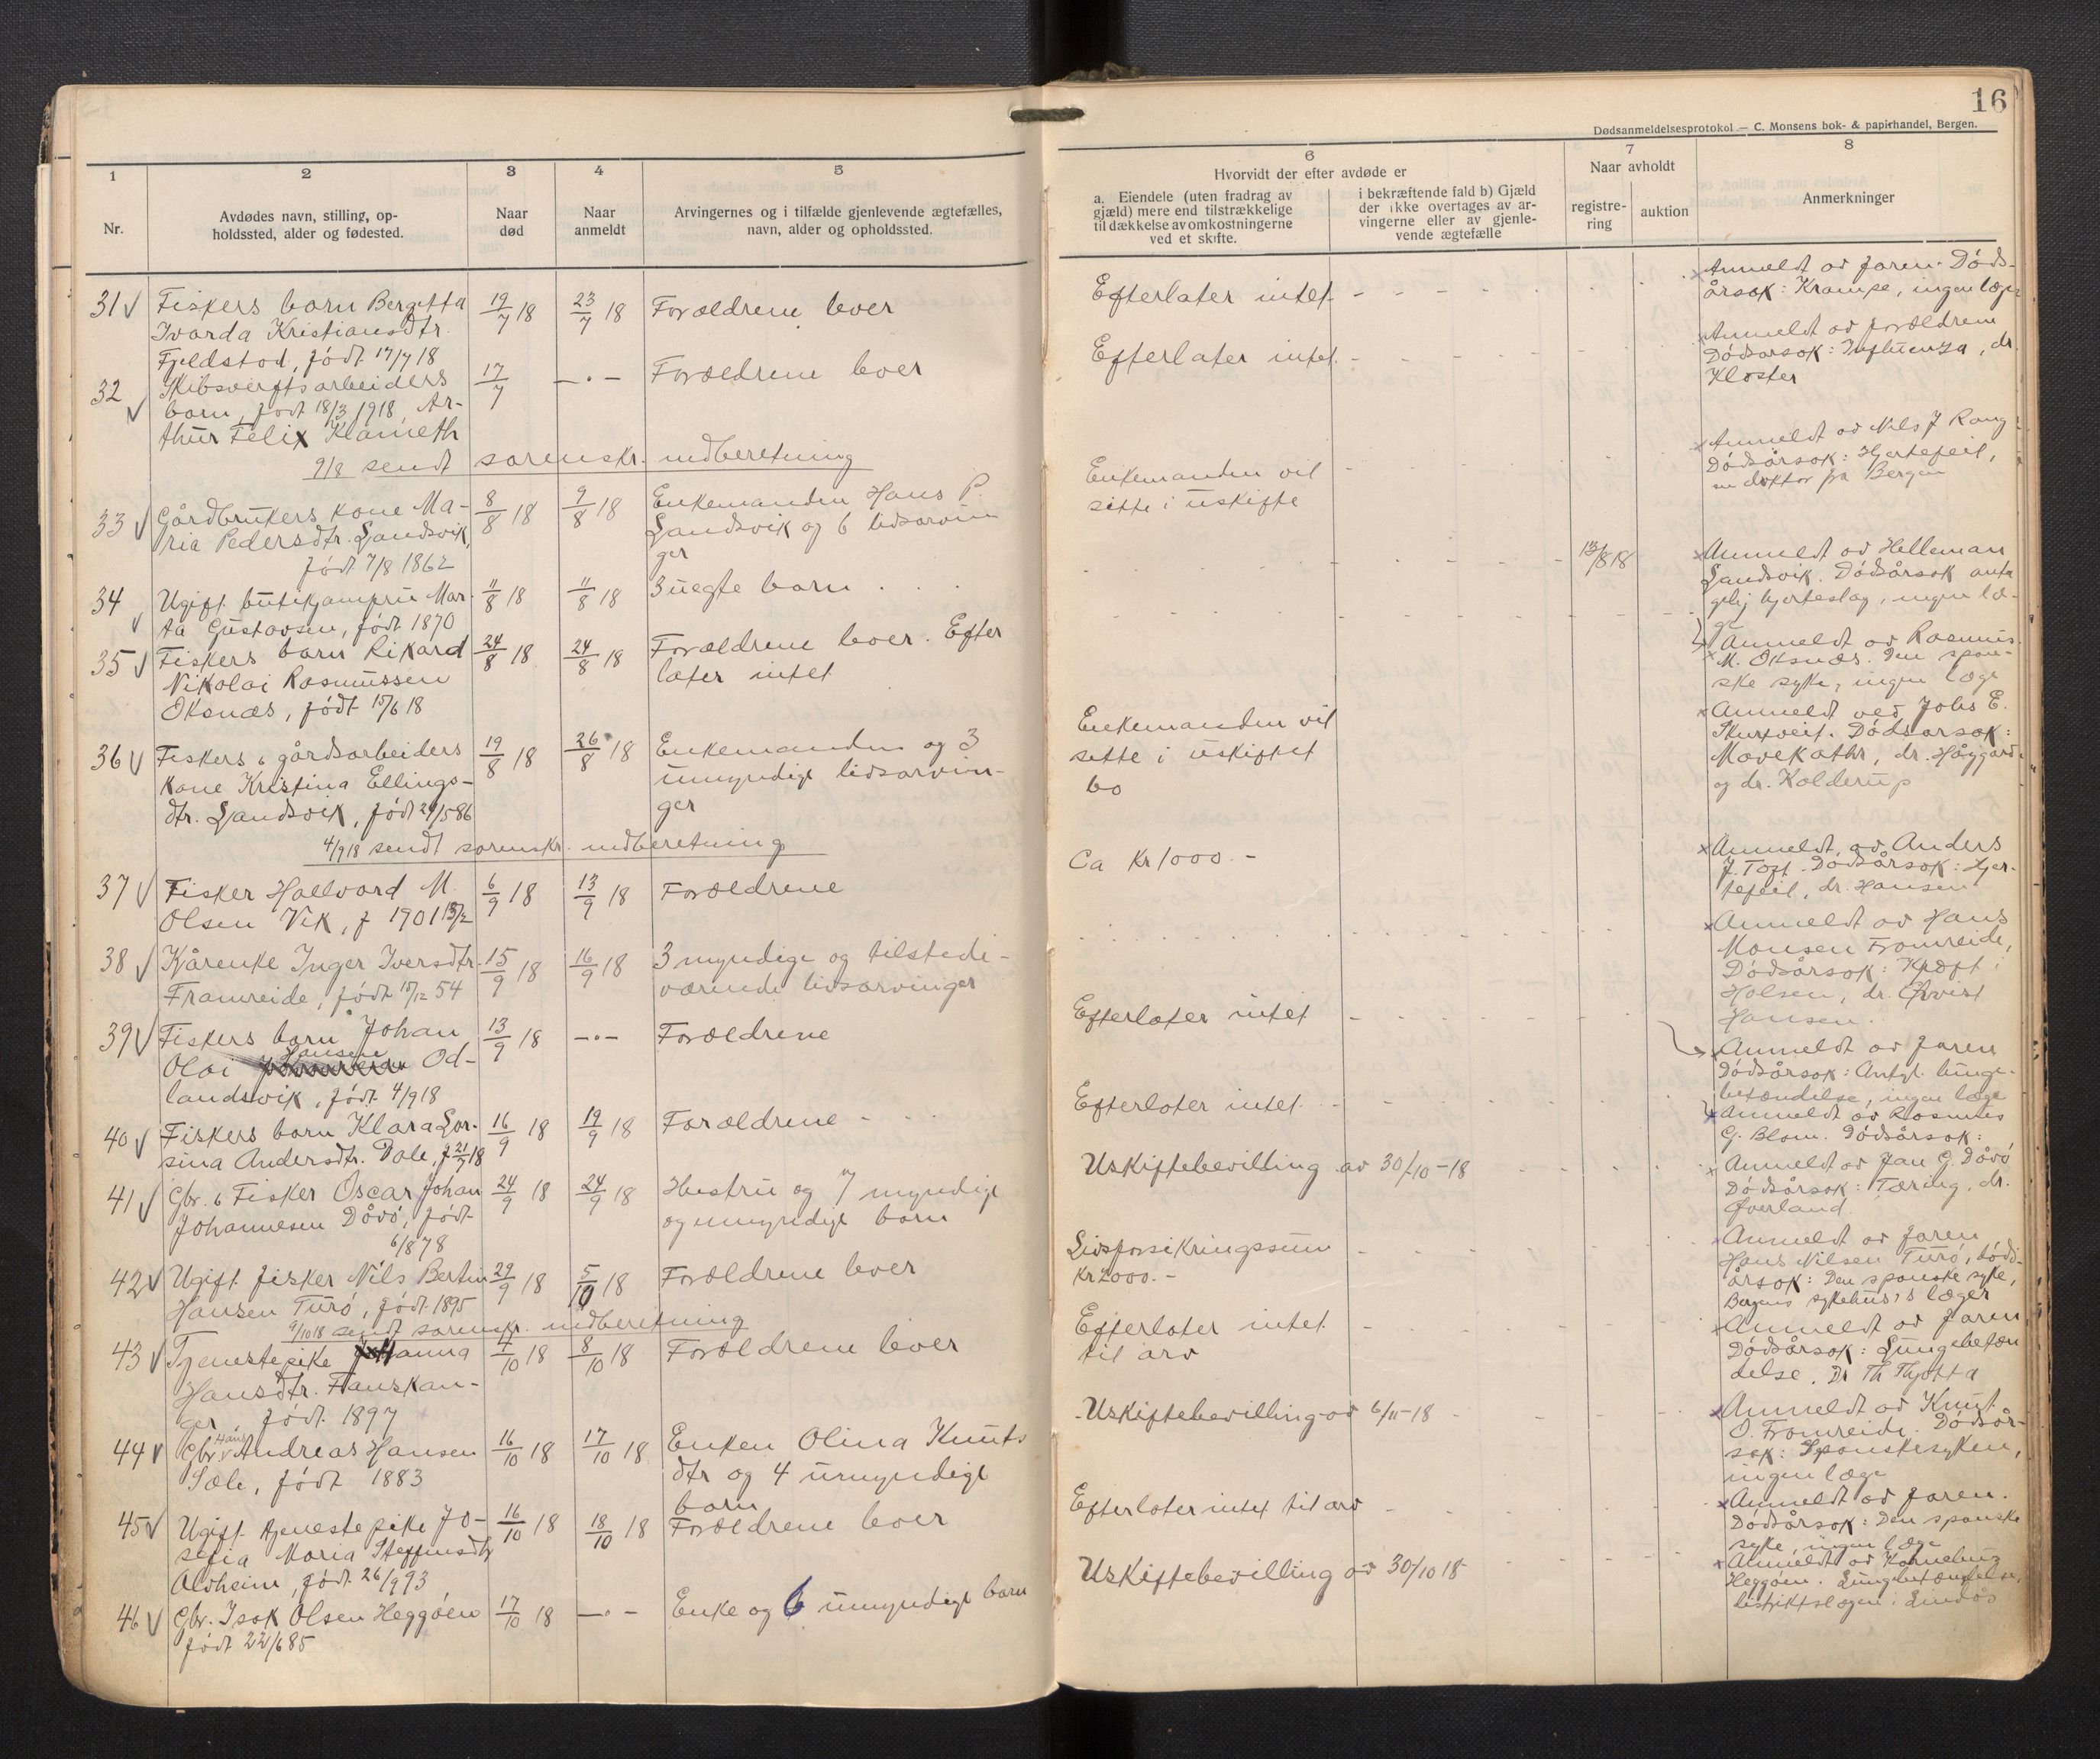 16
Dødsanmeldelsesprotokol — C. Monsens bok- & papirhandel, Bergen.
1
Nr.
2
Avdødes navn, stilling, op-
holdssted, alder og fødested.
3
Naar
død
4
Naar
anmeldt
5
Arvingernes og i tilfælde gjenlevende ægtefælles,
navn, alder og opholdssted.
6
Hvorvidt der efter avdøde er
a. Eiendele (uten fradrag av
gjæld) mere end tilstrækkelige
til dækkelse av omkostningerne
ved et skifte.
i bekræftende fald b) Gjæld
der ikke overtages av ar-
vingerne eller av gjenle-
vende ægtefælle
7
Naar avholdt
registre-
ring
auktion
8
Anmerkninger
31 Fiskers barn Bergitta 19/7 18 23/7 18 Foræeldrene lever
Ivarda Kristiansdtr.
Fjeldstad, født 17/7 18
Efterlater intet
Anmeldt av faren. Døds-
årsak: Krampe, ingen læge
32 Skibsverftsarbeiders 17/7 —〃— Forældrene lever
barn, født 18/3 1918, Ar-
thur Felix Klameth
Efterlater intet
Anmeldt av forældrene
Dødsårsak: Influenza, dr.
Kloster
9/8 sendt sorenskr. indberetning
33 Gårdbrukers kone Ma- 8/8 18 9/8 18 Enkemanden Hans P.
ria Pedersdtr. Landsvik, Landsvik og 6 livsarvin
født 7/8 1862 ger
Enkemanden vil
sitte i uskifte
Anmeldt av Nils J
Dødsårsak: Hjertefeil,
en doktor fra Bergen
34 Ugift butikjomfru Mar- 11/8 18 11/8 18 3 uegte barn
ta Gustavsen, født 1870
13/8 18
Anmeldt av Helleman
Landsvik. Dødsårsak anta
gelig hjerteslag, ingen læ-
ge
35 Fiskers barn Rikard 24/8 18 24/8 18 Forældrene lever. Efter
Nikolai Rasmussen later intet
Oksnæs, født 15/6 18
Anmeldt av Rasmus
M. Oksnæs. Den span-
ske syke, ingen læge
36 Fiskers & gårdsarbeiders 19/8 18 26/8 18 Enkemanden og 3
kone Kristina Ellings- umyndige livsarvin-
dtr. Landsvik, født 29/5 86 ger
Enkemanden vil
sitte i uskiftet
bo
Anmeldt ved Johs E.
Skurtveit. Dødsårsak:
Mavekathr, dr. Håggard
og dr. Kolderup
4/9 18 sendt sorenskr. indberetning
37 Fisker Hallvard M. 6/9 18 13/9 18 Forældrene
Olsen Vik, f 1901 13/2
Ca Kr 1000.-
Anmeldt av Anders
J. Toft. Dødsårsak: Hjer-
tefeil, dr. Hansen
38 Kårenke Inger Iversdtr. 15/9 18 16/9 18 3 myndige og tilstede-
Framreide, født 15/12 54 værende livsarvinger
Anmeldt av Hans
Monsen Framreide,
Dødsårsak: Kræft i
Halsen, dr. Qvist
Hansen.
39 Fiskers barn Johan 13/9 18 —〃— Forældrene
Olai Hansen Od-
landsvik, født 4/9 18
Efterlater intet
Anmeldt av faren
Dødsårsak: Antgl. lunge-
betændelse, ingen læge
40 Fiskers barn Klara Lor- 16/9 18 19/9 18 Forældrene
sina Andersdtr. Dale, f 21/7 18
Efterlater intet
Anmeldt av Rasmus
G. Blom. Dødsårsak:
41 Gbr. & Fisker Oscar Johan 24/9 18 24/9 18 Hustru og 7 myndige
Johannesen Dåvø, født og umyndige barn
6/8 78
Uskiftebevilling av 30/10-18
Anmeldt av Jan G. Dåvø
Dødsårsak: Tæring, dr.
Øverland.
42 Ugift fisker Nils Bertin 29/9 18 5/10 18 Forældrene lever
Hansen Turø, født 1895
Livsforsikringssum
Kr 2000.-
Anmeldt av faren
Hans Nilsen Turø, døds-
årsak: Den spanske syke,
Bergens sykehus's læger
9/10 18 sendt sorenskr. indberetning
43 Tjenestepike Hanna 7/10 18 8/10 18 Forældrene lever
Hansdtr. Fanskan-
ger, født 1897
Efterlater intet
til arv
Anmeldt av faren
Dødsårsak: Lungebetæn
delse. Dr Th Thjøtta
44 Gbr. Hans Andreas Hansen 16/10 18 17/10 18 Enken Olina Knuts
Sæle, født 1883 dtr og 4 umyndige
barn
Uskiftebevilling av 6/11-18
Anmeldt av Knut
O. Framreide. Dødsår-
sak: Spanskesyken,
ingen læge
45 Ugift tjenestepike Jo- 16/10 18 18/10 18 Forældrene lever
sefia Maria Steffensdtr
Alvheim, født 26/9 93
Efterlater intet til arv
Anmeldt av faren.
Dødsårsak: Den spanske
syke, ingen læge
46 Gbr. Isak Olsen Heggøen 17/10 18 —〃— Enke og 6 umyndige barn
født 22/6 85
Uskiftebevilling av 30/10 18
Anmeldt av
Heggøen. Lungebetændelse,
distriktslægen i Lindås